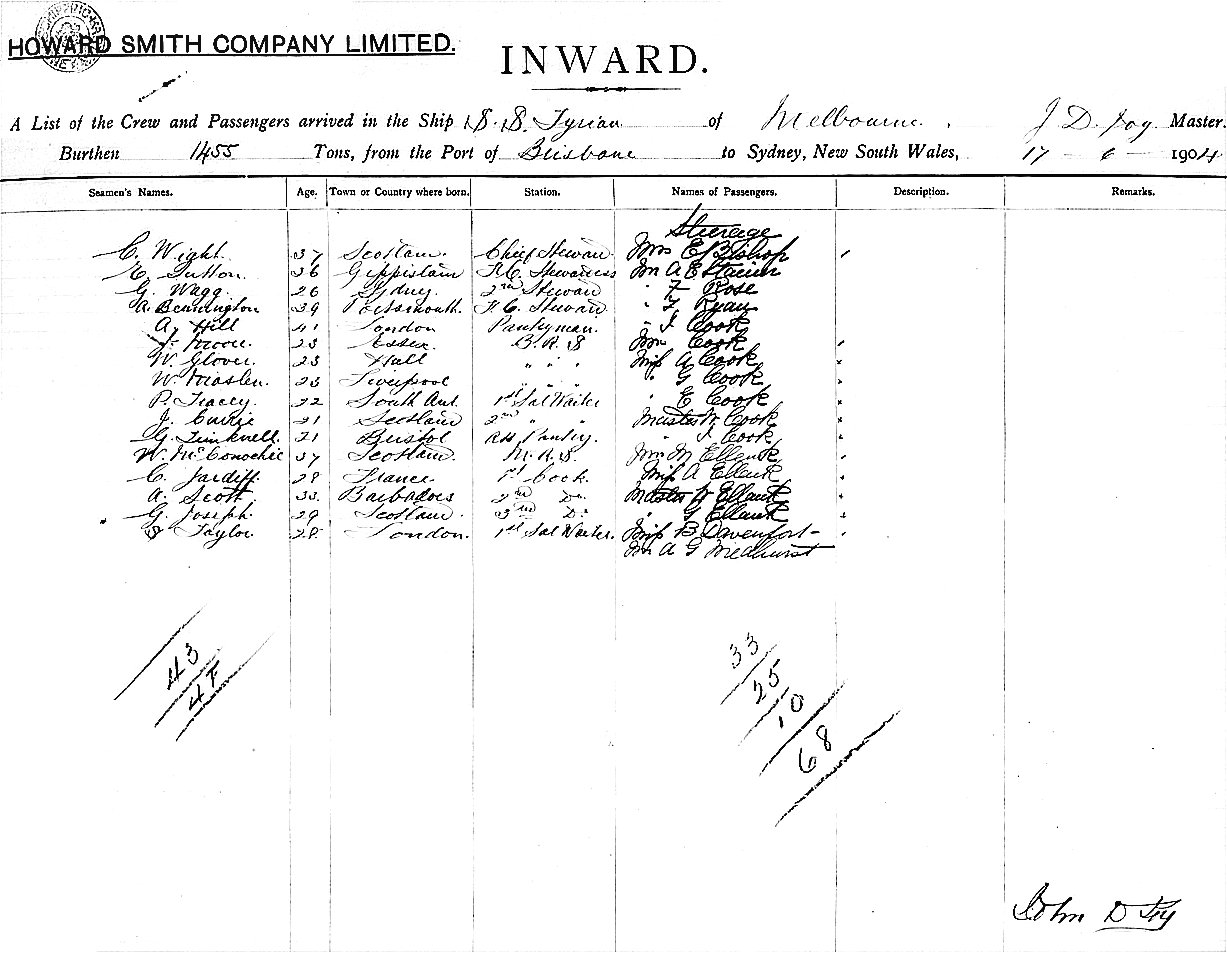 HOWARD SMITH COMPANY LIMITED.
INWARD.
A List of the Crew and Passengers arrived in the Ship S.S. Tyrian of Melbourne, J D. Foy Master.
Burthen 1455 Tons, from the Port of Brisbane to Sydney, New South Wales, 17 - 6 - 1904
Seamen's Names. Age. Town or Country where born. Station. Names of Passengers. Description. Remarks.
Steerage
C. Wight. 37 Scotland Chief Steward Mrs E Bishop
E. Sutton. 36 Gippsland F.C. Stewardess Mr A E
G. Wagg. 26 Sydney. 2nd Steward " F Rose
A. Bennington 39 Portsmouth. F.C. Steward " F Ryan
A. Hill 41 London Pantryman. " J Cook
J. Moore. 23 Essex. B.R.S Mrs Cook
W. Glover. 23 Hull " " " Miss A Cook
W. Maslen. 23 Liverpool " " " " G Cook
P. Tracey. 22 South Aus. 1st Sal Waiter " E Cook
J. Currie 21 Scotland 2nd " " Master W Cook
G. 21 Bristol Pantry. " J Cook
W. McConochie 37 Scotland. M.R.S. Mrs M Ellault
C. Jardiff. 28 France 1st Cook. Miss A Ellault
A. Scott. 33. Barbadoes 2nd Do Master W Ellault
G. Joseph. 29 Scotland. 3rd Do " G Ellault
S Taylor. 28 London. 1st Sal Waiter. Miss B Davenport
Mr A G Medhurst
43
47
33
25
10
68
John D Foy